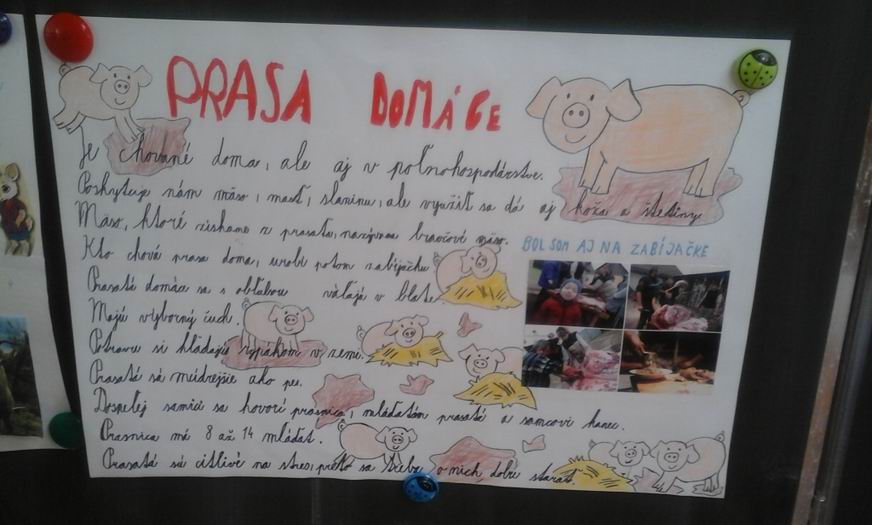 PRASA DOMÁCE
Je chované doma, ale aj v poľnohospodárstve.
Poskytuje nám mäso, masť, slaninu, ale využiť sa dá aj koža a štetiny.
Mäso, ktoré získame z prasaťa, nazývame bravčové mäso.
BOL SOM AJ NA ZABÍJAČKE
Kto chová prasa doma, urobí potom zabíjačku
Prasatá domáce sa s obľubou váľajú v blate.
Majú výborný čuch.
Potravu si hľadajú rypákom v zeme.
Prasatá sú múdrejšie ako psi.
Dospelej samici sa hovorí prasnica, mláďatám prasatá a samcovi kanec.
Prasnica má 8 až 14 mláďat.
Prasatá sú citlivé na stres, preto sa treba o nich dobre starať.